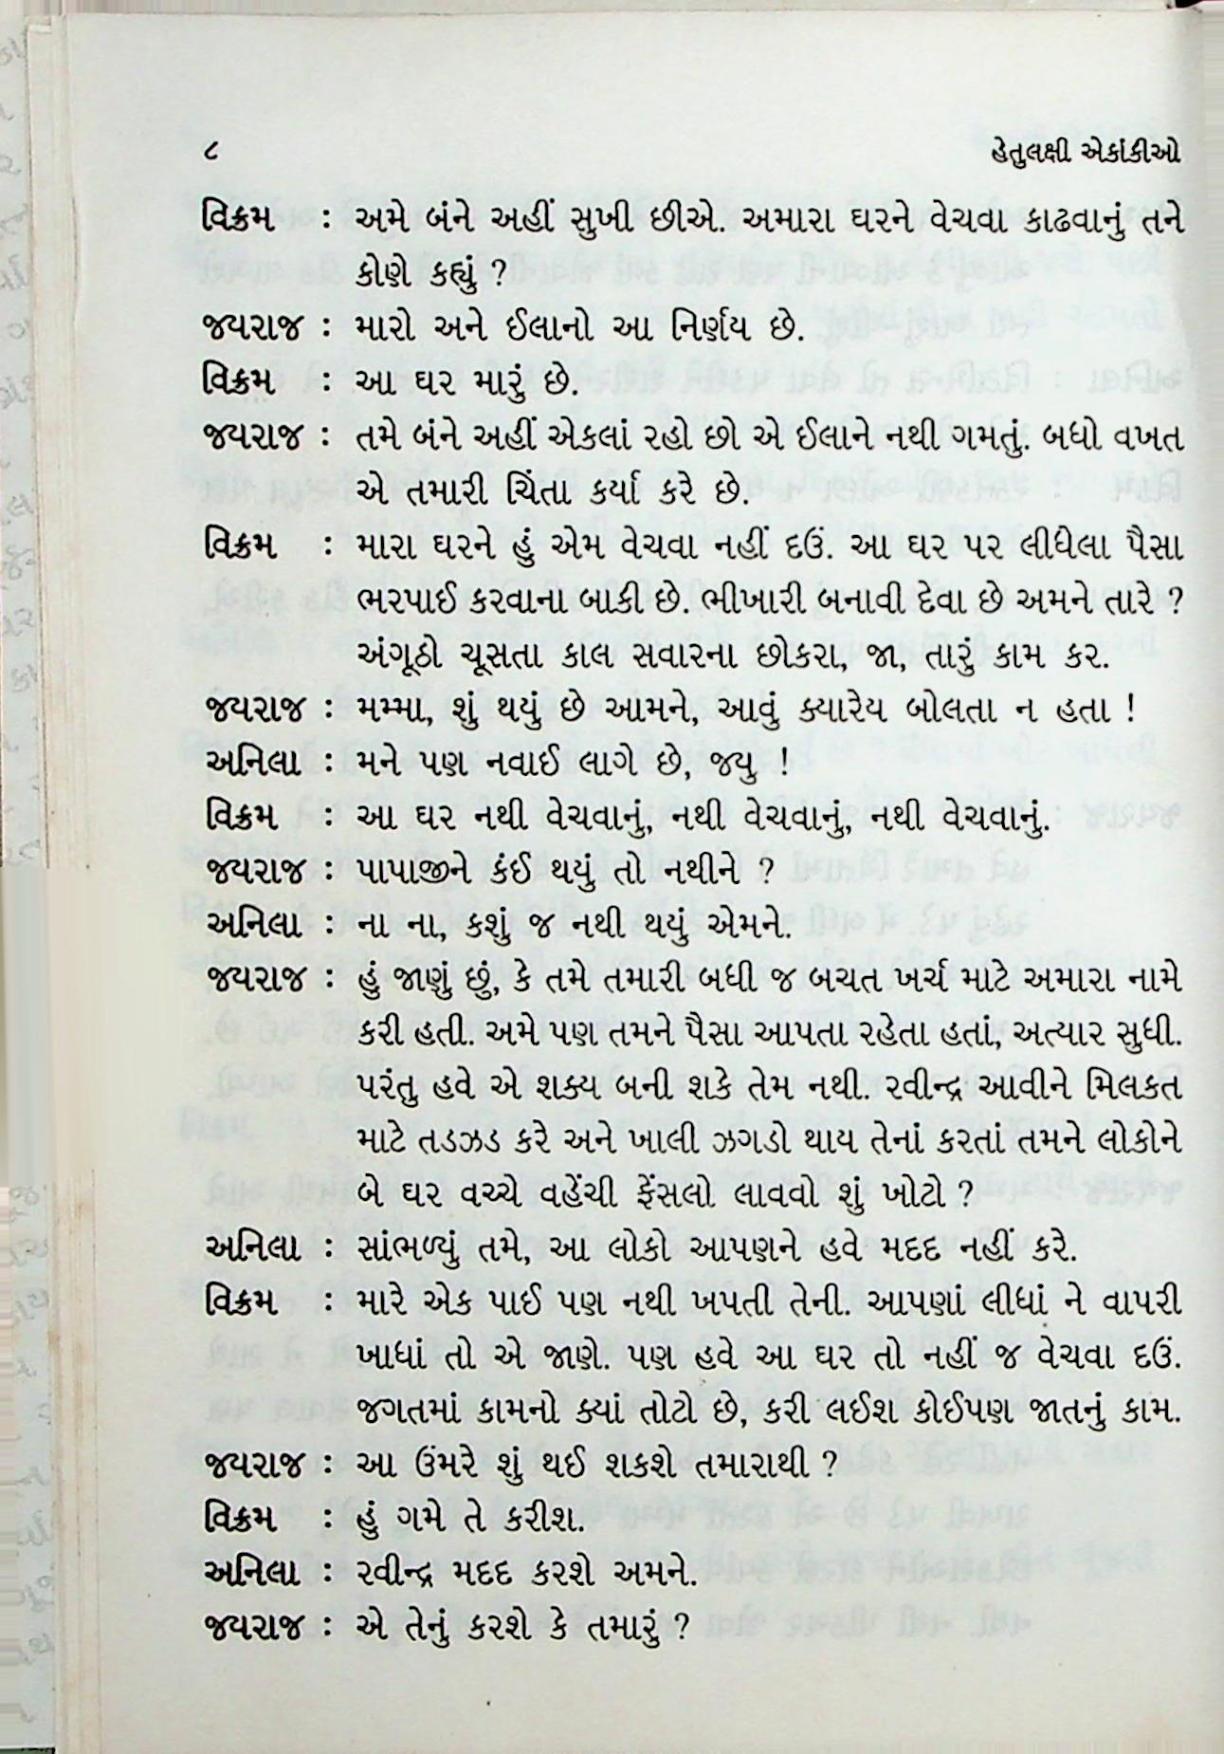 ૮ હેતુલક્ષી એકાંકીઓ
વિક્રમ : અમે બંને અહીં સુખી છીએ. અમારા ઘરને વેચવા કાઢવાનું તને
કોણે કહ્યું ?
જયરાજ : મારો અને ઈલાનો આ નિર્ણય છે.
વિક્રમ : આ ઘર મારું છે.
જયરાજ : તમે બંને અહીં એકલાં રહો છો એ ઈલાને નથી ગમતું. બધો વખત
એ તમારી ચિંતા કર્યા કરે છે.
વિક્રમ : મારા ઘરને હું એમ વેચવા નહીં દઉં. આ ઘર પર લીધેલા પૈસા
ભરપાઈ કરવાના બાકી છે. ભીખારી બનાવી દેવા છે અમને તારે ?
અંગૂઠો ચૂસતા કાલ સવારના છોકરા, જા, તારું કામ કર.
જયરાજ : મમ્મા, શું થયું છે આમને, આવું ક્યારેય બોલતા ન હતા !
અનિલા : મને પણ નવાઈ લાગે છે, જયુ !
વિક્રમ : આ ઘર નથી વેચવાનું, નથી વેચવાનું, નથી વેચવાનું.
જયરાજ : પાપાજીને કંઈ થયું તો નથીને ?
અનિલા : ના ના, કશું જ નથી થયું એમને.
જયરાજ : હું જાણું છું, કે તમે તમારી બધી જ બચત ખર્ચ માટે અમારા નામે
કરી હતી. અમે પણ તમને પૈસા આપતા રહેતા હતાં, અત્યાર સુધી.
પરંતુ હવે એ શક્ય બની શકે તેમ નથી. રવીન્દ્ર આવીને મિલકત
માટે તડઝડ કરે અને ખાલી ઝગડો થાય તેનાં કરતાં તમને લોકોને
બે ઘર વચ્ચે વહેંચી ફેંસલો લાવવો શું ખોટો ?
અનિલા : સાંભળ્યું તમે, આ લોકો આપણને હવે મદદ નહીં કરે.
વિક્રમ : મારે એક પાઈ પણ નથી ખપતી તેની. આપણાં લીધાં ને વાપરી
ખાધાં તો એ જાણે. પણ હવે આ ઘર તો નહીં જ વેચવા દઉં.
જગતમાં કામનો ક્યાં તોટો છે, કરી લઈશ કોઈપણ જાતનું કામ.
જયરાજ : આ ઉંમરે શું થઈ શકશે તમારાથી ?
વિક્રમ : હું ગમે તે કરીશ.
અનિલા : રવીન્દ્ર મદદ કરશે અમને.
જયરાજ : એ તેનું કરશે કે તમારું ?